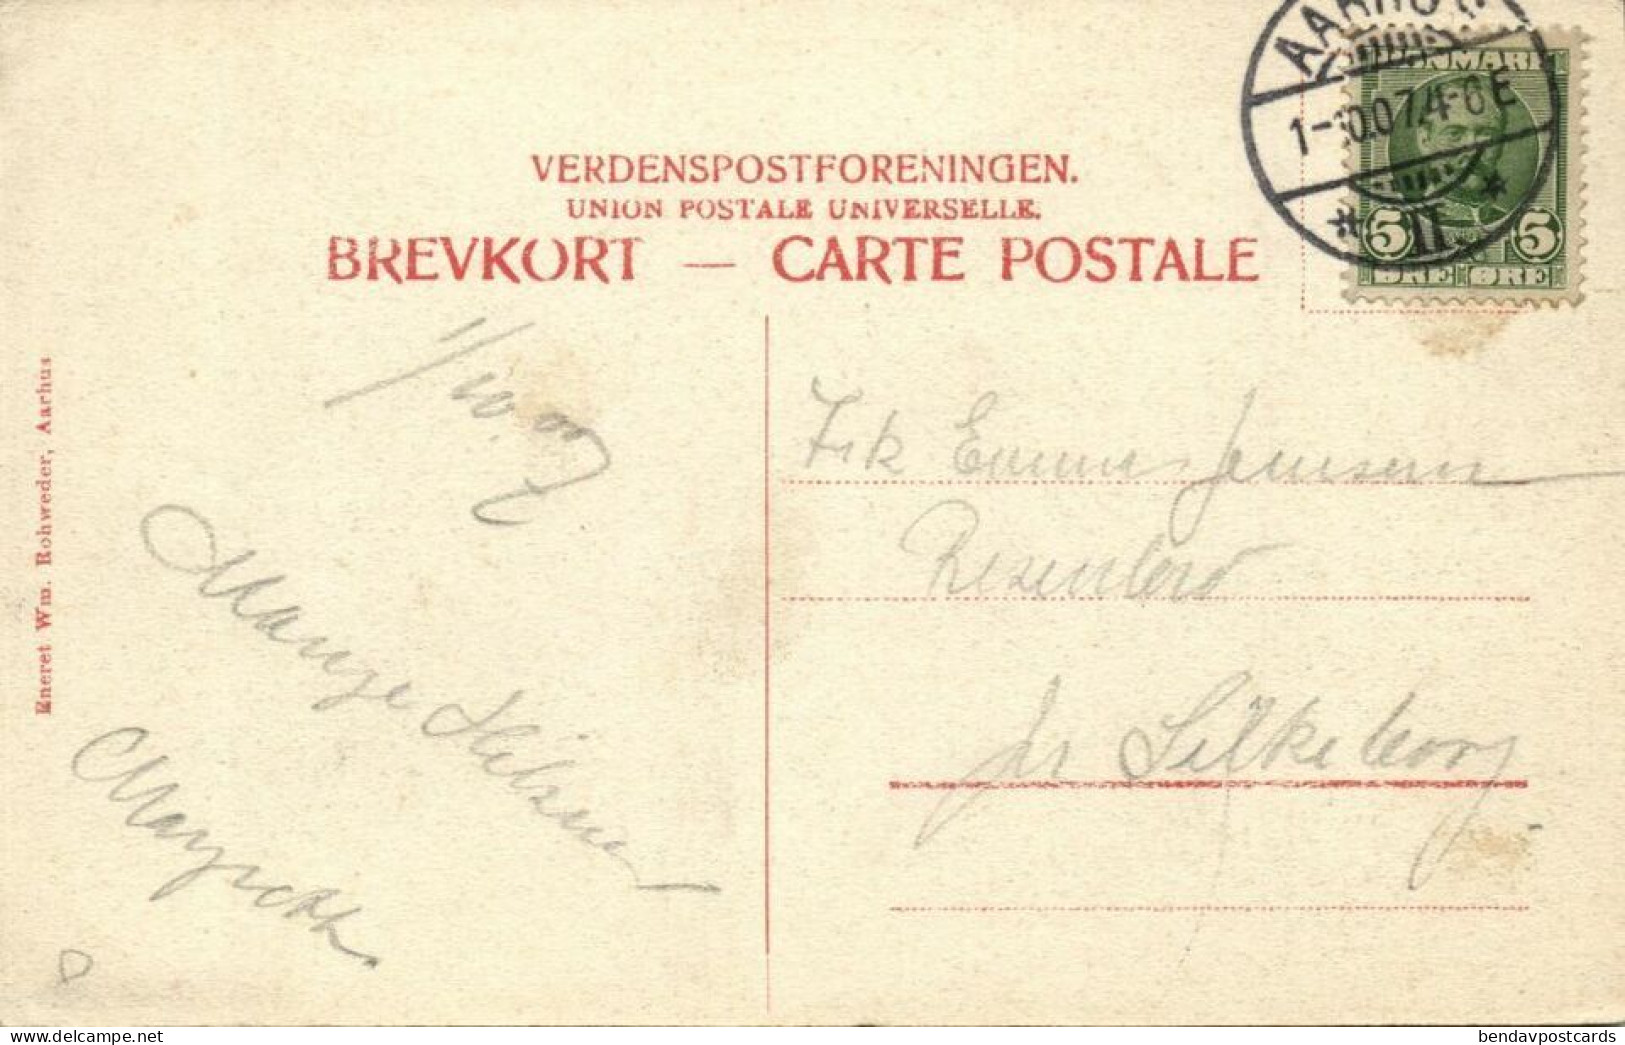 AARHUS
1-10.07.4-6E
* II *
DANMARK
5 5
ØRE ØRE
VERDENSPOSTFORENINGEN.
UNION POSTALE UNIVERSELLE.
BREVKORT — CARTE POSTALE
Eneret Wm. Rohweder, Aarhus
1/10. 07
Mange Hilsner
Frk Emma Jensen
Resenbro
pr Silkeborg
bendavpostcards